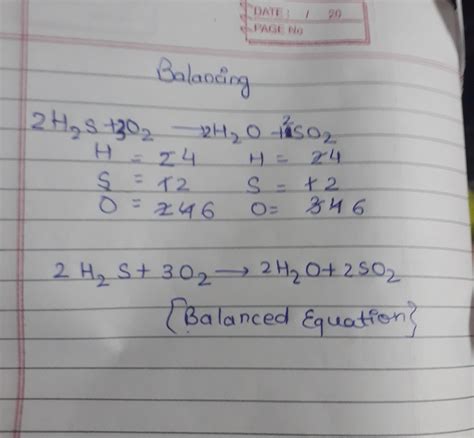 DATE: / 20
PAGE No
Balancing
2H₂S+3O₂ → 2H₂O+2SO₂
H = 2 4 H = 2 4
S = 1 2 S = 1 2
O = 2 4 6 O= 3 4 6
2 H₂ S + 3O₂ → 2H₂O+2SO₂
{Balanced Equation}